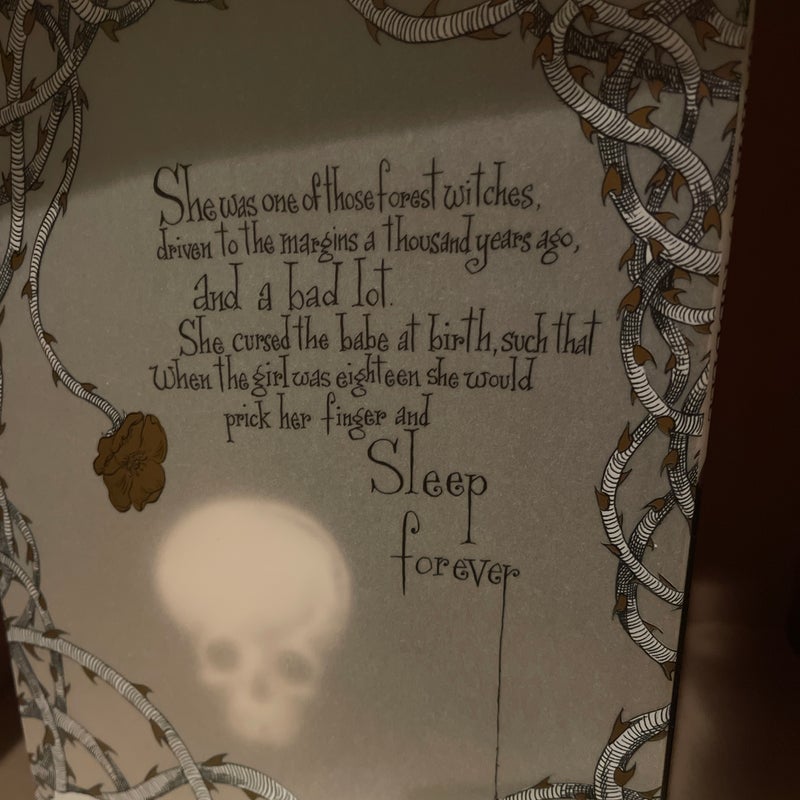 She was one of those forest witches,
driven to the margins a thousand years ago,
and a bad lot.
She cursed the babe at birth, such that
when the girl was eighteen she would
prick her finger and
Sleep
forever